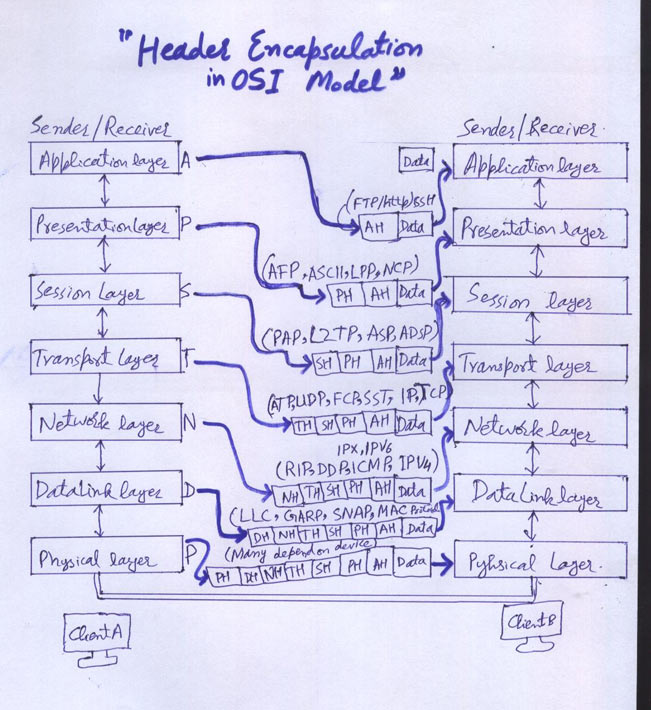 "Header Encapsulation
in OSI Model"
Sender/Receiver
Sender/Receiver.
Application layer A
Data
Application layer
(FTP/http/SSH
AH Data
Presentation Layer P
Presentation layer
(AFP, ASCII, LPP, NCP)
PH AH Data
Session Layer S
Session layer
(PAP, L2TP, ASP, ADSP)
SH PH AH Data
Transport Layer T
Transport layer
(ATP, UDP, FCP, SST, IP, TCP)
TH SH PH AH Data
Network layer N
Network layer
IPX, IPV6
(RIP, DDP, ICMP, IPV4)
NH TH SH PH AH Data
DataLink layer D
DataLink layer
(LLC, GARP, SNAP, MAC
DH NH TH SH PH AH Data
(Many depend on device)
Physical layer P
PH DH NH TH SH PH AH Data
Pyhsical Layer.
Client A
Client B